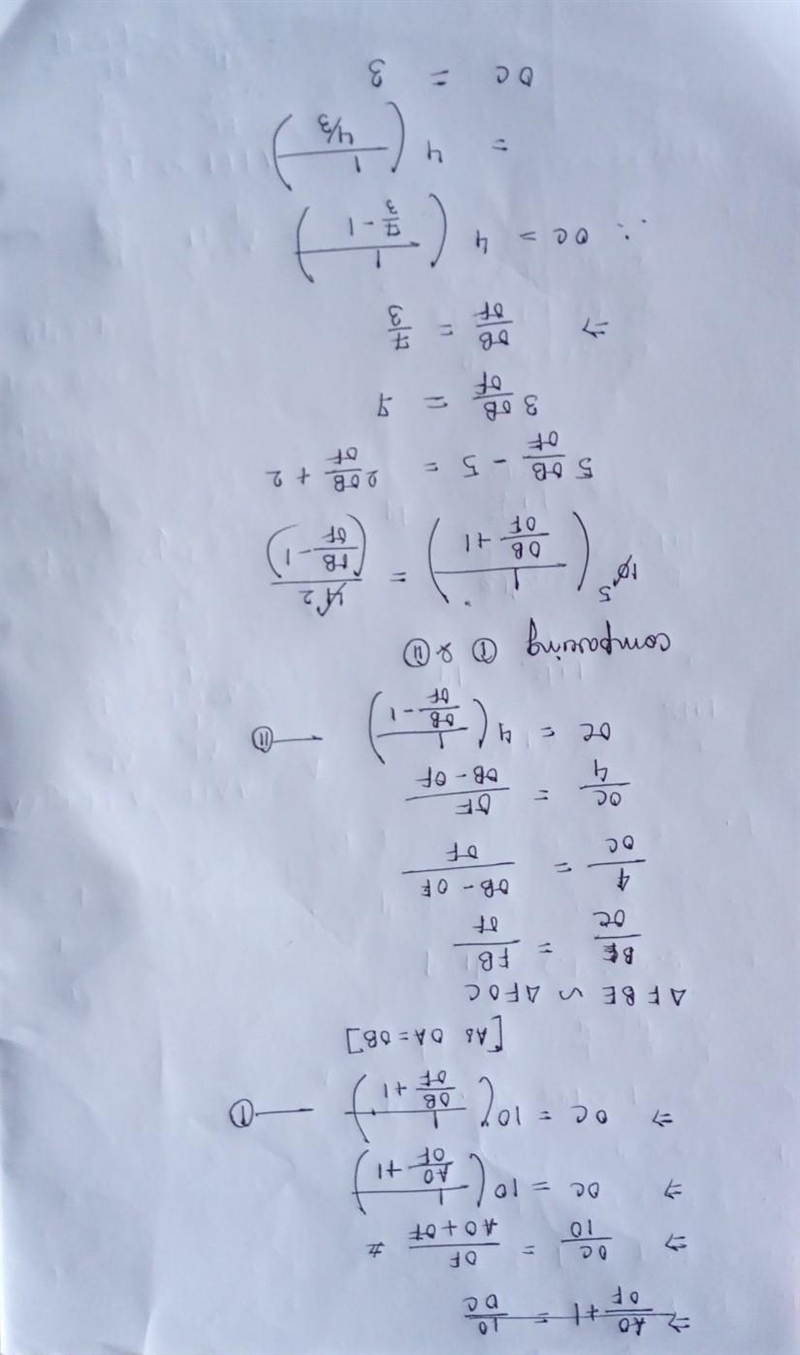 ⇒ AO/OF + 1 = 10/OC
⇒ OC/10 = OF/(AO + OF)
⇒ OC = 10 ( 1/(AO/OF + 1) )
⇒ OC = 10 ( 1/(OB/OF + 1) ) — ①
[As OA = OB]
Δ FBE ∽ Δ FOC
BE/OC = FB/OF
4/OC = (OB - OF)/OF
OC/4 = OF/(OB - OF)
OC = 4 ( 1/(OB/OF - 1) ) — ⑪
comparing ① & ⑪
10 5 ( 1/(OB/OF + 1) ) = 4 2/(OB/OF - 1)
5 OB/OF - 5 = 2 OB/OF + 2
3 OB/OF = 7
⇒ OB/OF = 7/3
∴ OC = 4 ( 1/(7/3 - 1) )
= 4 ( 1/(4/3) )
OC = 3